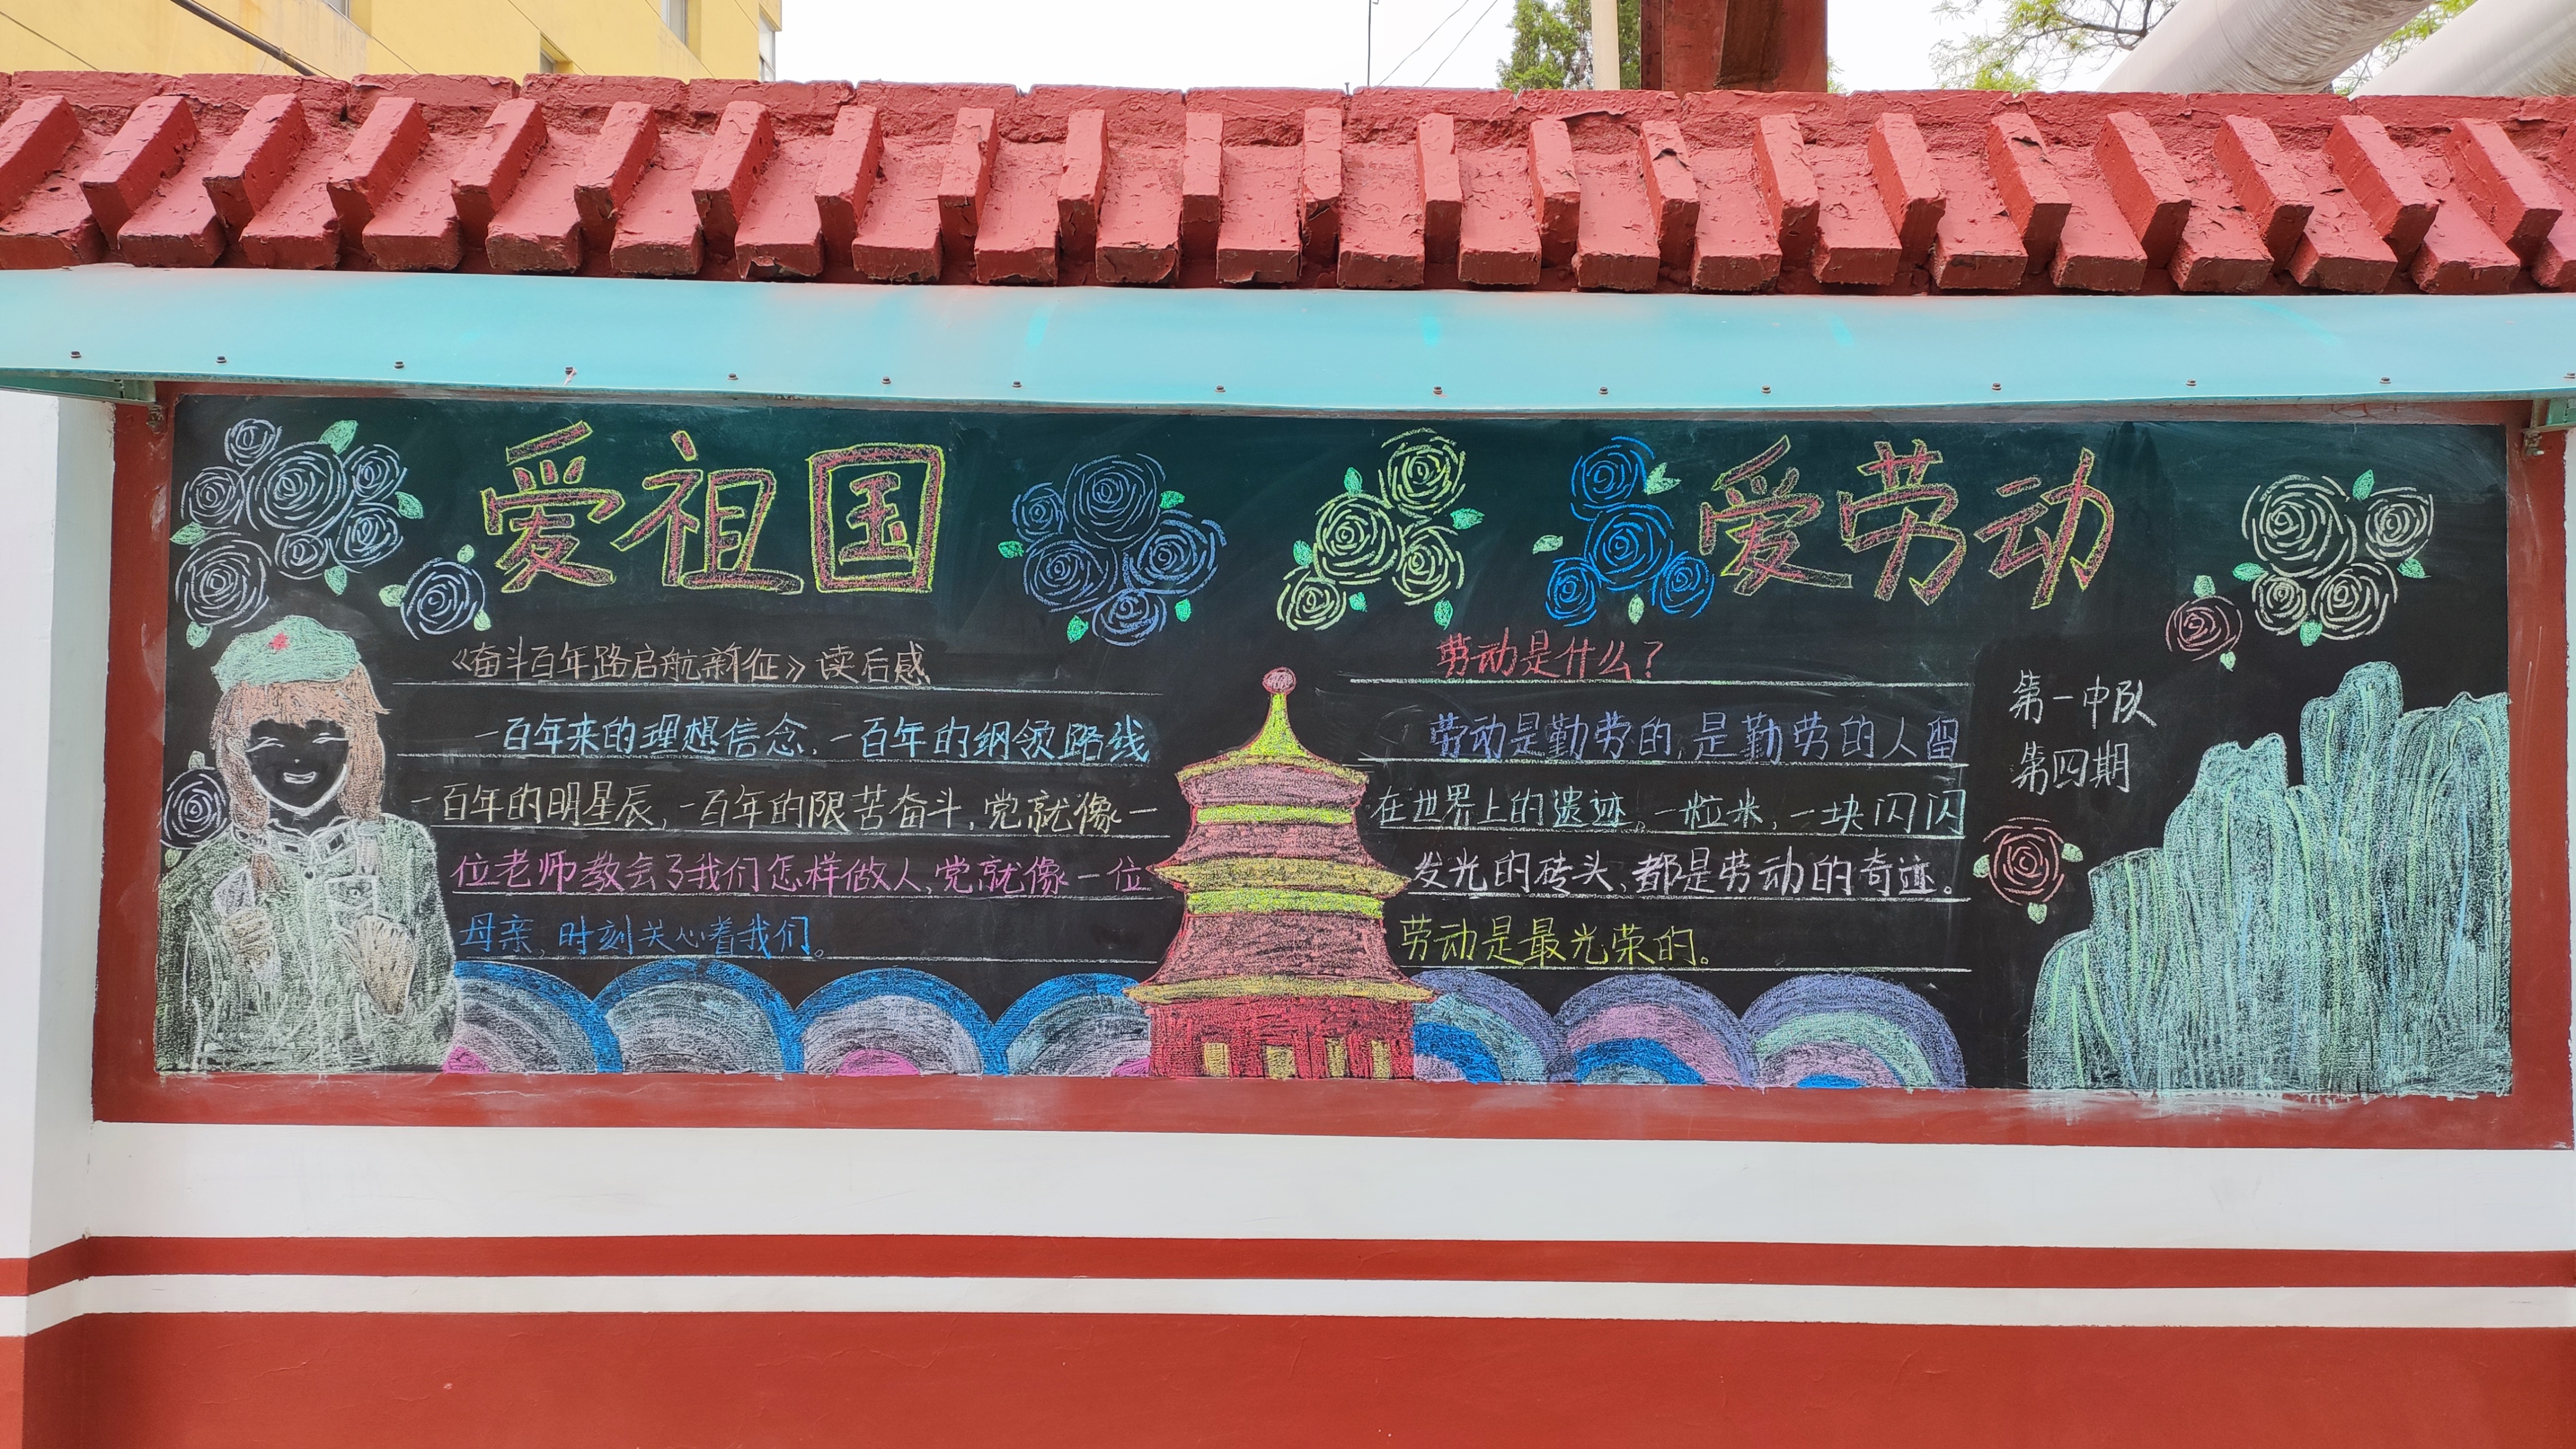 爱祖国
《奋斗百年路启航新征》读后感
一百年来的理想信念,一百年的纲领路线
一百年的明星辰,一百年的限苦奋斗,党就像一
位老师教会了我们怎样做人,党就像一位
母亲,时刻关心着我们。
爱劳动
劳动是什么?
劳动是勤劳的,是勤劳的人留
在世界上的遗迹。一粒米,一块闪闪
发光的砖头、都是劳动的奇迹。
劳动是最光荣的。
第一中队
第四期